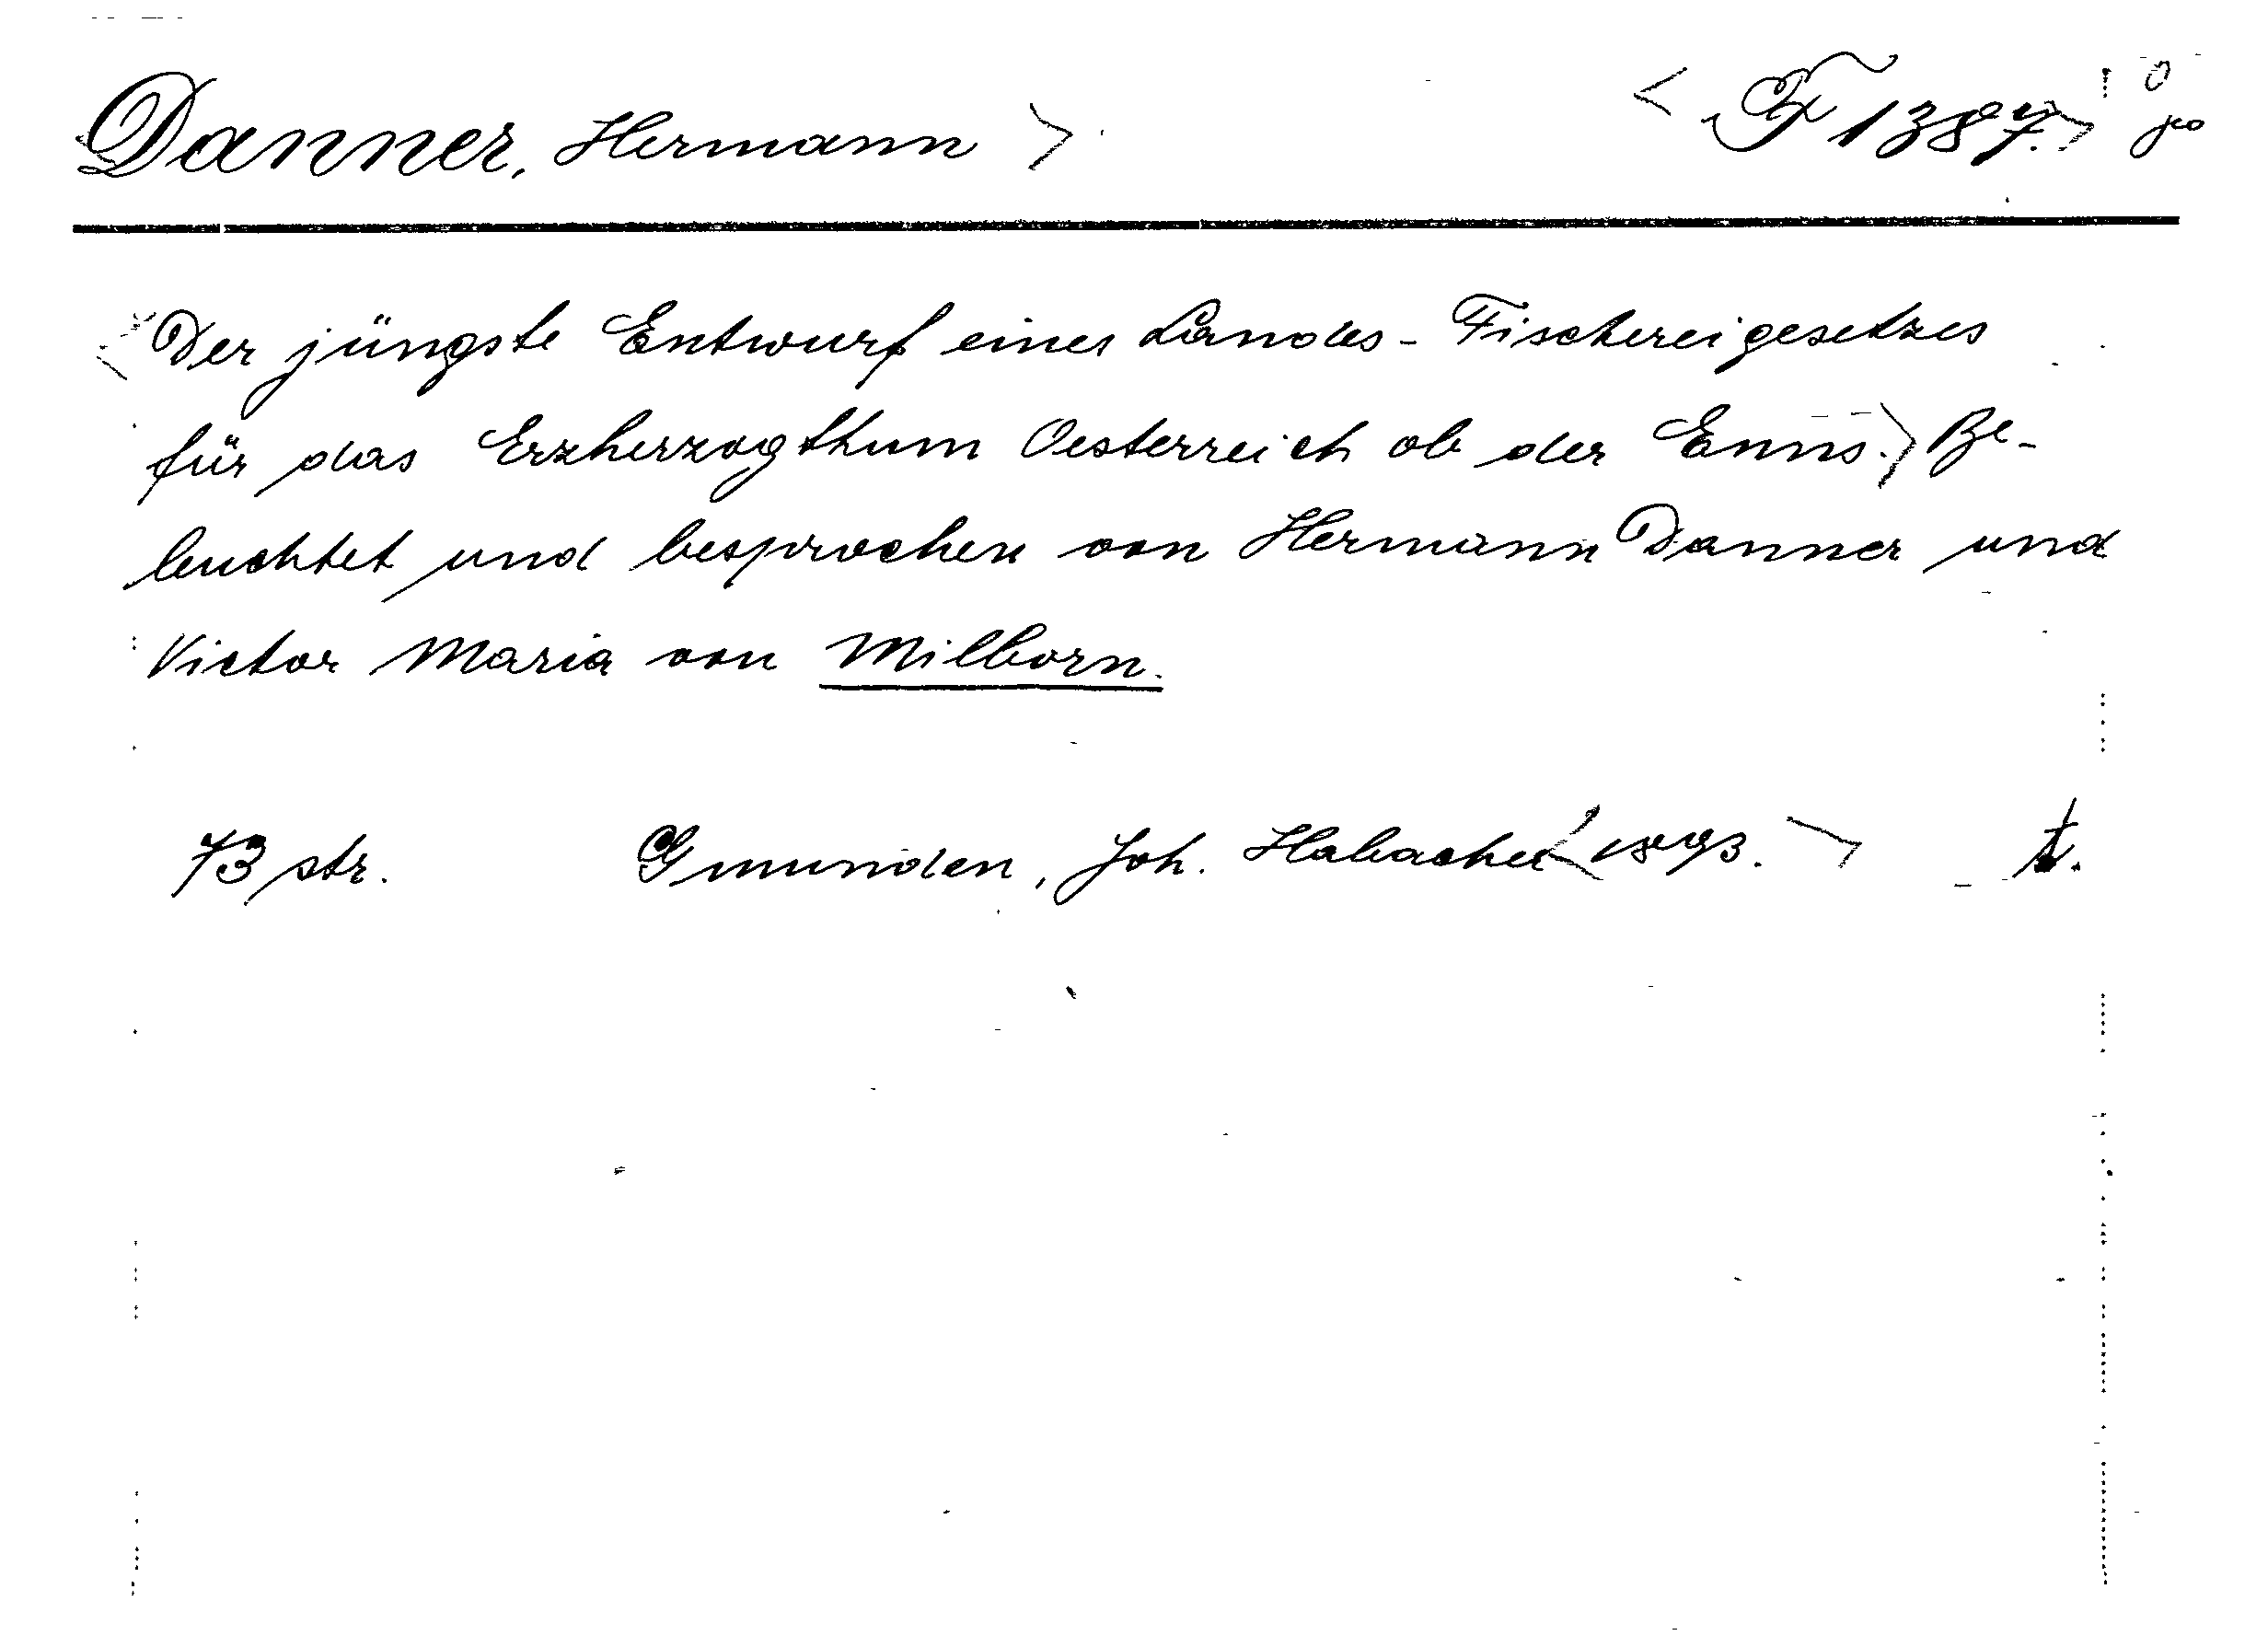 Danner, Hermann F 1387.
Der jüngste Entwurf eines Landes-Fischereigesetzes
für das Erzherzogthum Oesterreich ob der Enns. Be-
leuchtet und besprochen von Hermann Danner und
Victor Maria von Milborn.
73 str. Gmunden, Joh. Habacher 1893.